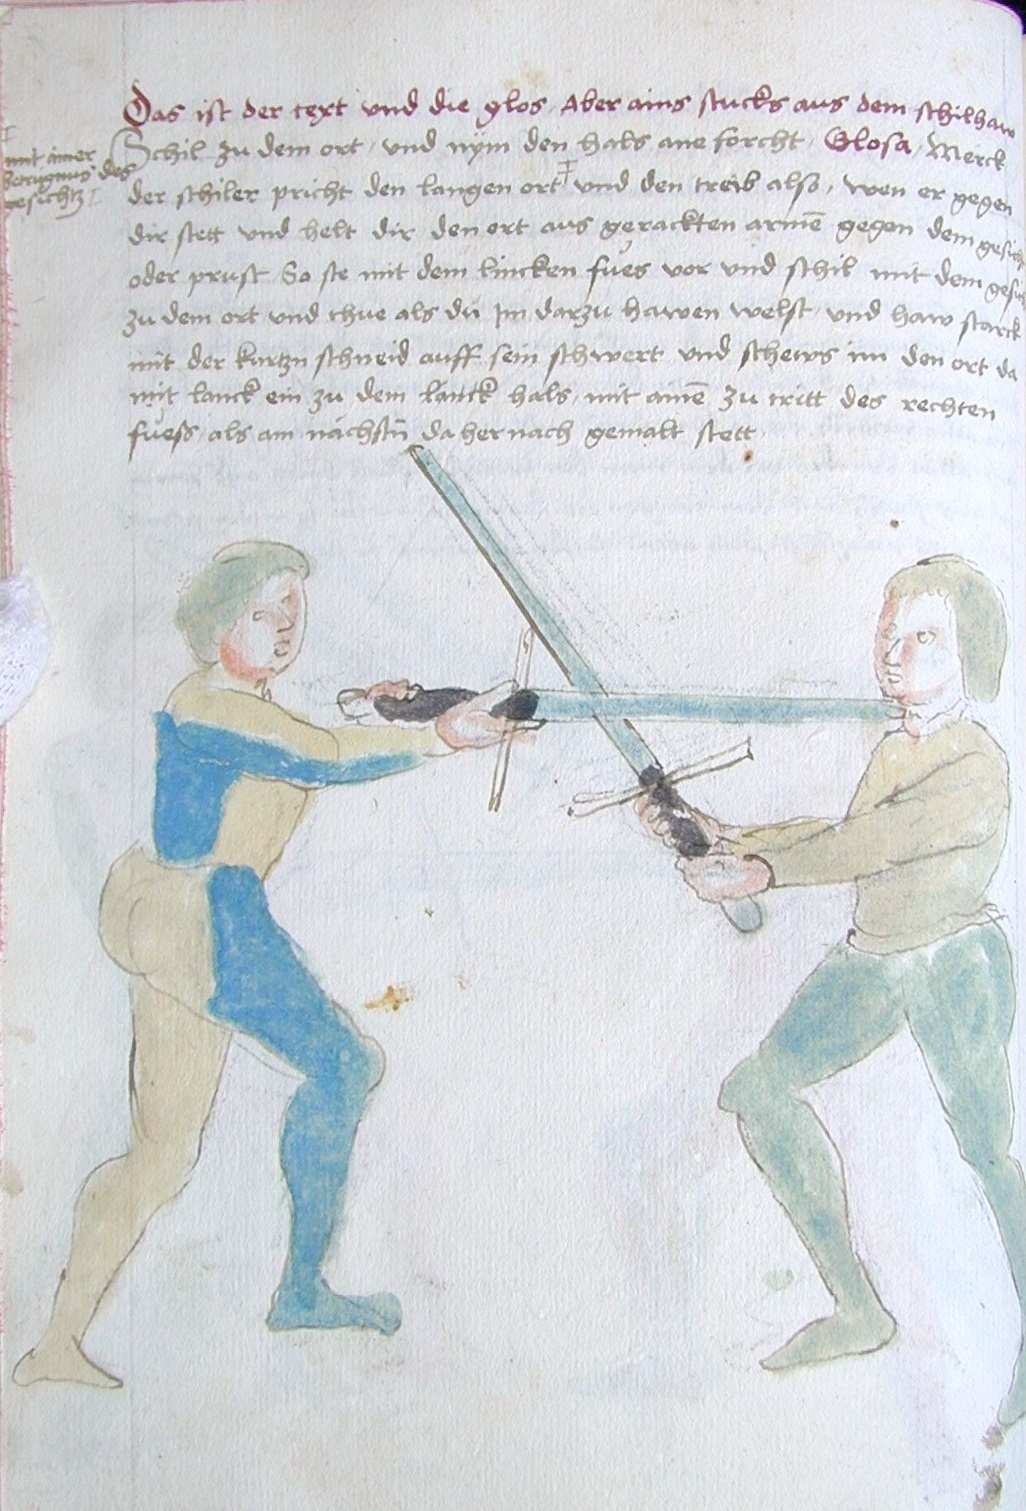 Das ist der text vnd die glos Aber ains stucks aus dem schilhaw
Schil zu dem ort / vnd nym den hals ane forcht / Glosa / Merck
mit ainer
des
gesichtz
der schiler pricht den langen ort vnd den treib also / wen er gegen
dir stett vnd helt dir den ort aus gerackten armē gegen dem gesicht
oder prust So ste mit dem lincken fues vor vnd schil mit dem gesicht
zu dem ort vnd thue als dü jm darzu hawen welst / vnd haw starck
mit der kurtzn schneid auff sein schwert vnd schews im den ort da
mit lanck ein zu dem hals / mit ainē zu tritt des rechten
fuess / als am nachstn̄ da hernach gemalt stett